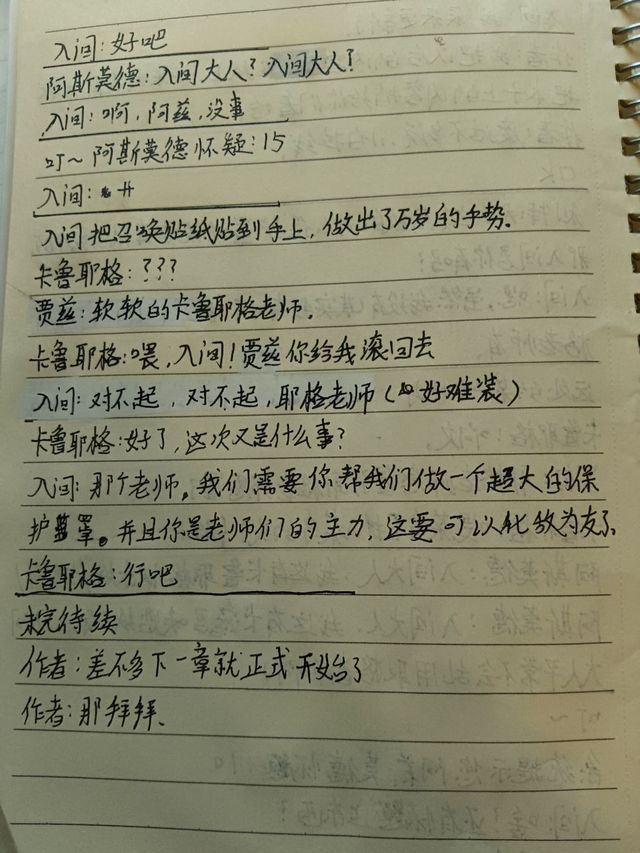 入间：好吧
阿斯莫德：入间大人？入间大人？
入间：啊，阿兹，没事
叮～阿斯莫德怀疑：15
入间：艹
入间把召唤贴纸贴到手上，做出了万岁的手势。
卡鲁耶格：？？？
贾兹：软软的卡鲁耶格老师。
卡鲁耶格：喂，入间！贾兹你给我滚回去
入间：对不起，对不起，耶格老师（好难装）
卡鲁耶格：好了，这次又是什么事？
入间：那个老师，我们需要你帮我们做一个超大的保
护罩。并且你是老师们的主力，这要可以化敌为友了
卡鲁耶格：行吧
未完待续
作者：差不多下一章就正式开始了
作者：那拜拜、